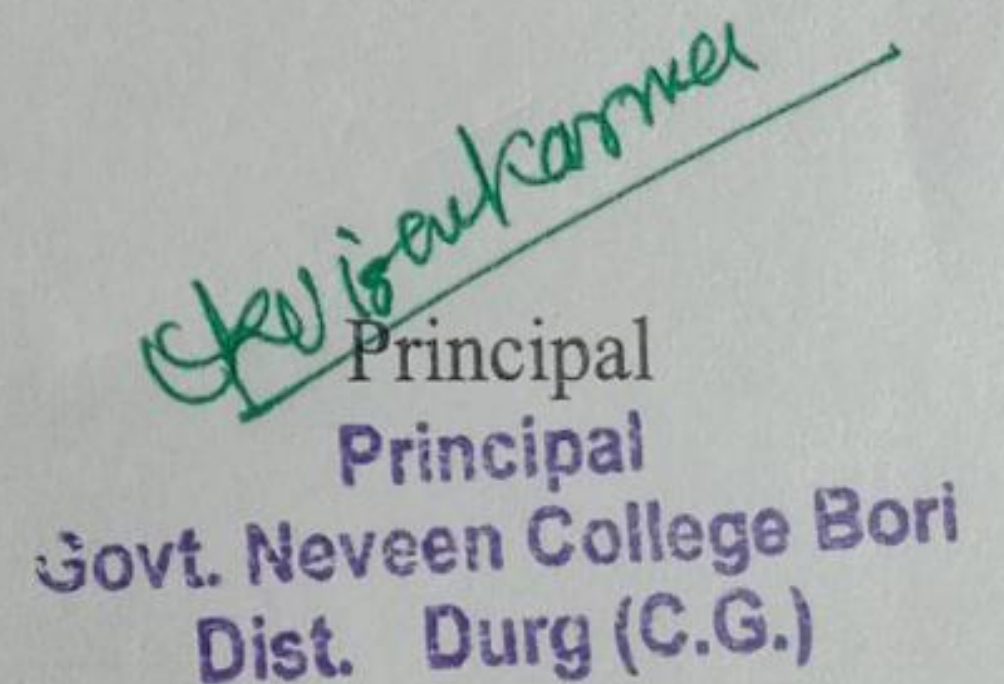 Principal
Principal
Govt. Neveen College Bori
Dist. Durg (C.G.)